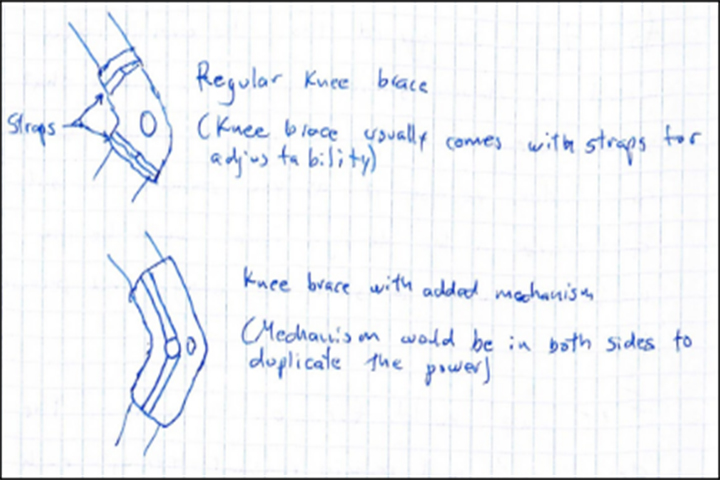 Regular Knee brace
Straps
(Knee brace usually comes with straps for
adjustability)
Knee brace with added mechanism
(Mechanism would be in both sides to
duplicate the power)